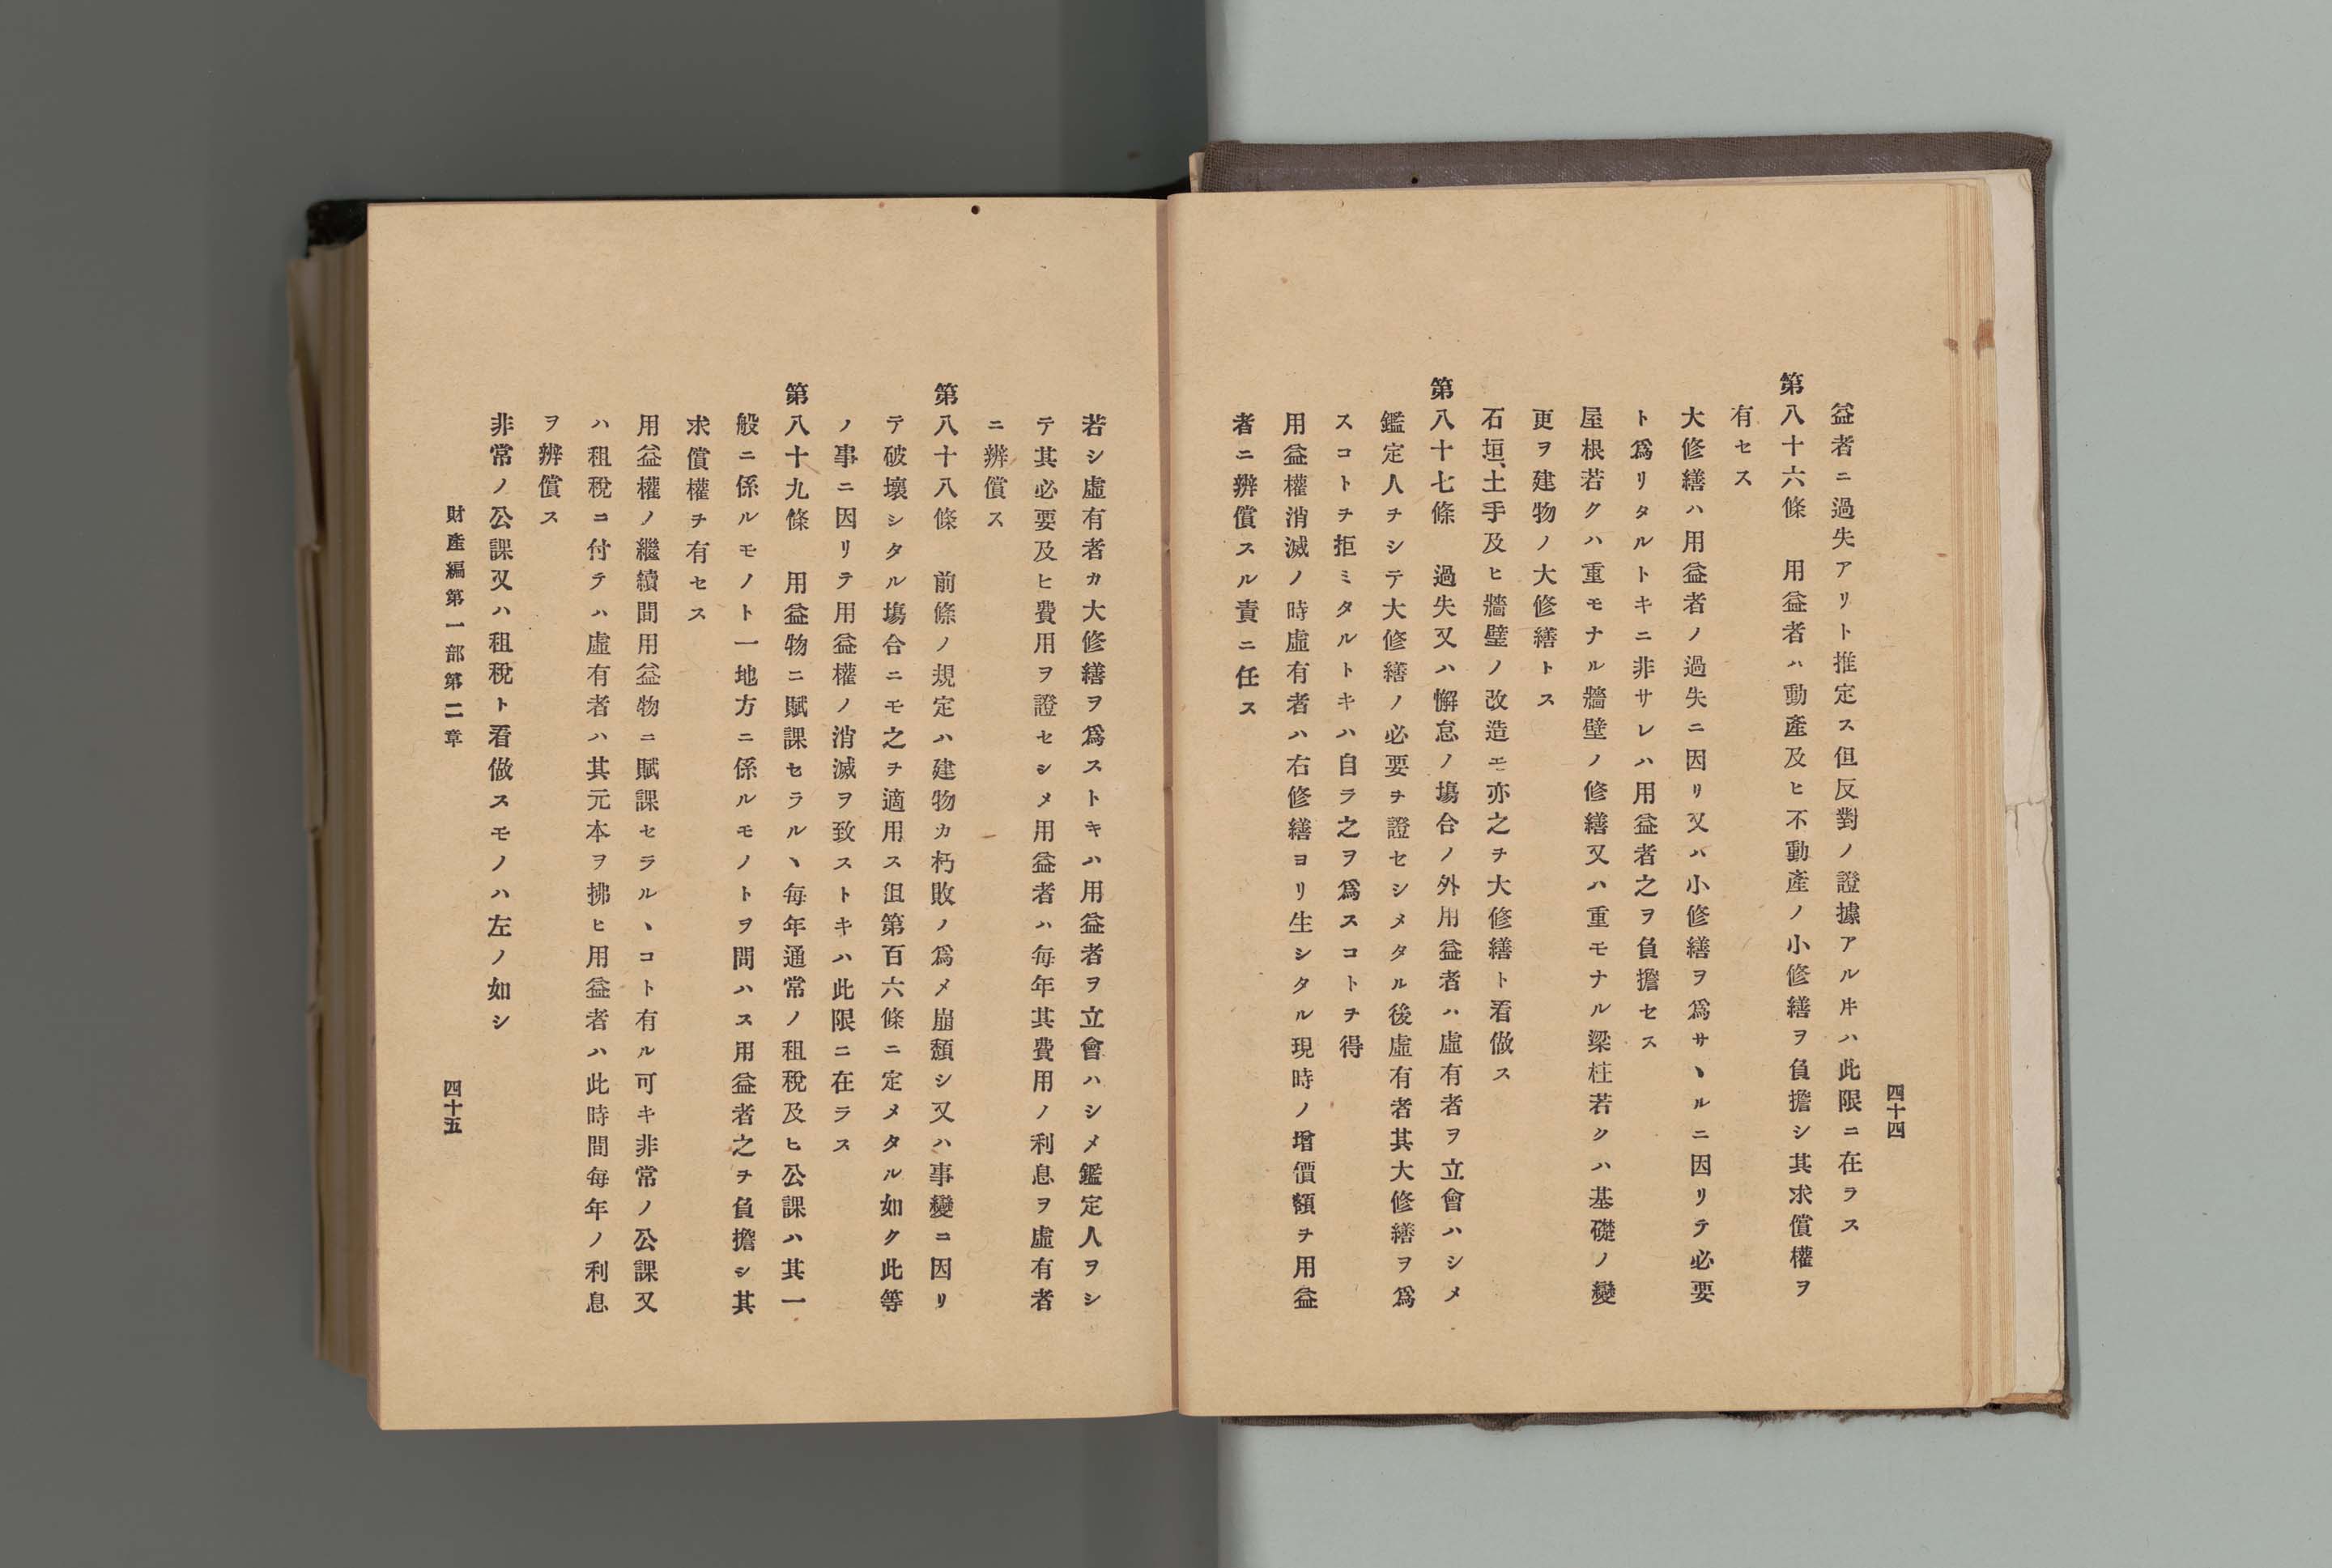 四十四
益者ニ過失アリト推定ス但反對ノ證據アルヰハ此限ニ在ラス
第八十六條　用益者ハ動產及ヒ不動產ノ小修繕ヲ負擔シ其求償權ヲ
有セス
大修繕ハ用益者ノ過失ニ因リ又ハ小修繕ヲ爲サヽルニ因リテ必要
ト爲リタルトキニ非サレハ用益者之ヲ負擔セス
屋根若クハ重モナル牆壁ノ修繕又ハ重モナル梁柱若クハ基礎ノ變
更ヲ建物ノ大修繕トス
石垣、土手及ヒ牆壁ノ改造モ亦之ヲ大修繕ト看做ス
第八十七條　過失又ハ懈怠ノ塲合ノ外用益者ハ虛有者ヲ立會ハシメ
鑑定人ヲシテ大修繕ノ必要ヲ證セシメタル後虛有者其大修繕ヲ爲
スコトヲ拒ミタルトキハ自ラ之ヲ爲スコトヲ得
用益權消滅ノ時虛有者ハ右修繕ヨリ生シタル現時ノ增價額ヲ用益
者ニ辨償スル責ニ任ス
若シ虛有者カ大修繕ヲ爲ストキハ用益者ヲ立會ハシメ鑑定人ヲシ
テ其必要及ヒ費用ヲ證セシメ用益者ハ每年其費用ノ利息ヲ虛有者
ニ辨償ス
第八十八條　前條ノ規定ハ建物カ朽敗ノ爲メ崩頽シ又ハ事變ニ因リ
テ破壞シタル塲合ニモ之ヲ適用ス但第百六條ニ定メタル如ク此等
ノ事ニ因リテ用益權ノ消滅ヲ致ストキハ此限ニ在ラス
第八十九條　用益物ニ賦課セラルヽ每年通常ノ租稅及ヒ公課ハ其一
般ニ係ルモノト一地方ニ係ルモノトヲ問ハス用益者之ヲ負擔シ其
求償權ヲ有セス
用益權ノ繼續間用益物ニ賦課セラルヽコト有ル可キ非常ノ公課又
ハ租稅ニ付テハ虛有者ハ其元本ヲ拂ヒ用益者ハ此時間每年ノ利息
ヲ辨償ス
非常ノ公課又ハ租稅ト看做スモノハ左ノ如シ
財產編第一部第二章
四十五